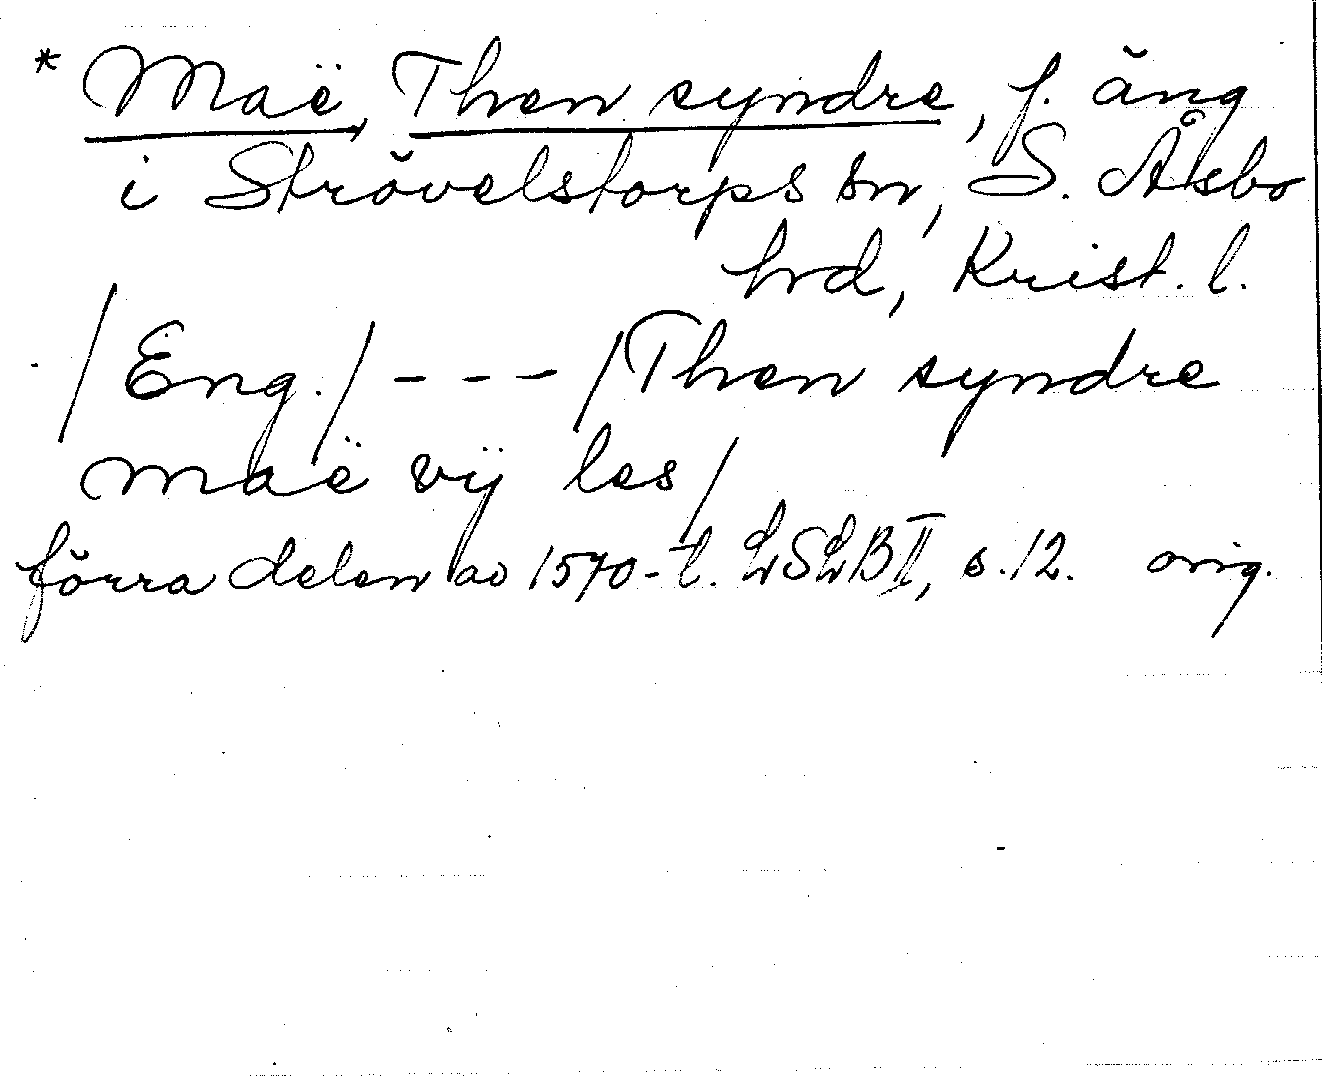 * Maë, Then syndre, f. äng
i Strövelstorps sn, S. Åsbo
hrd, Krist. l.
/Eng./ - - - /Then syndre
maë vÿ les/
förra delen av 1570-t. LSLB II, s. 12. orig.